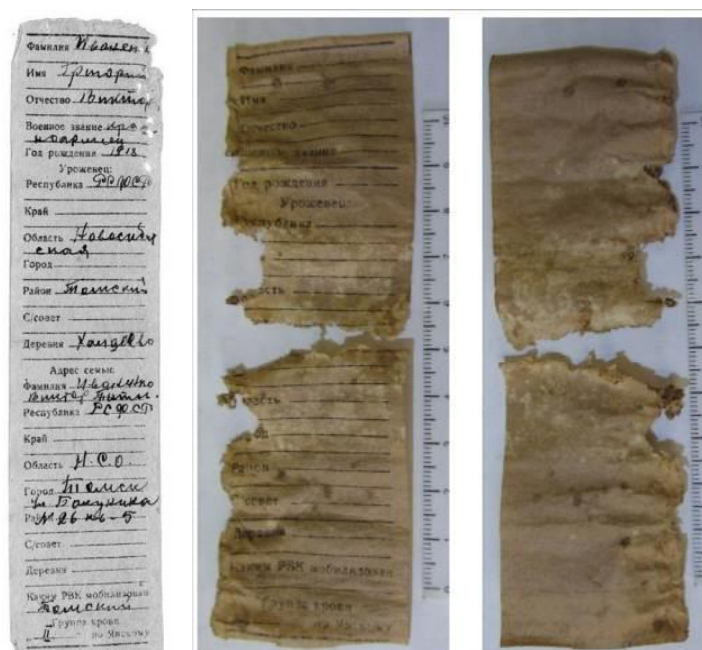 Фамилия
Имя Григорий
Отчество Виктор
Военное звание кра-
ноармеец
Год рождения 1918
Уроженец:
Республика РСФСР
Край
Область Новосибир
ская
Город
Район Томский
С/совет
Деревня
Адрес семьи:
Фамилия
Виктор
Республика РСФСР
Край
Область Н.С.О.
Город Томск
ул Бакунина
Район 26 кв-5
С/совет
Деревня
Каким РВК мобилизован
Томский
Группа крови
II по Янскому
Фамилия
Имя
Отчество
звания
Год рождения
Уроженец:
Республика
Область
Область
Район
С/совет
Деревня
Каким РВК мобилизован
Группа крови
по Янскому